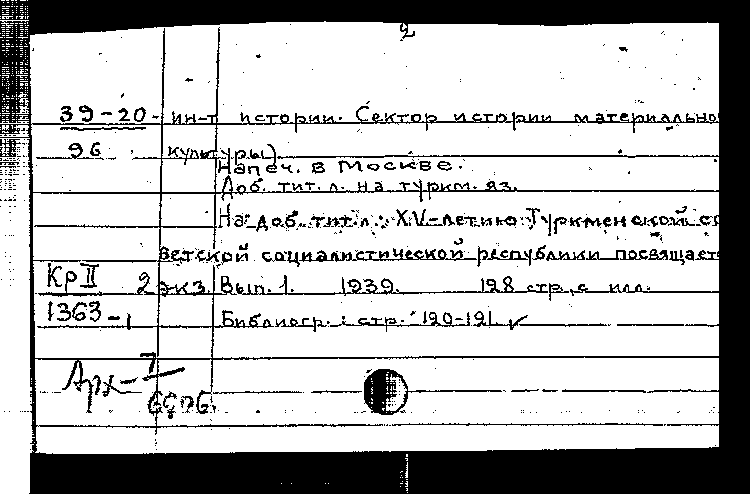 2
39-20- ин-т истории. Сектор истории материально
96 культуры).
Напеч. в Москве.
Доб. тит. л. на туркм. яз.
На доб. тит. л.: XV-летию Туркменской со
ветской социалистической республики посвящает
Кр II 2 экз. Вып. 1. 1939. 128 стр. с илл.
1363-1 Библиогр.: стр. 120-121. ✓
Арх-7